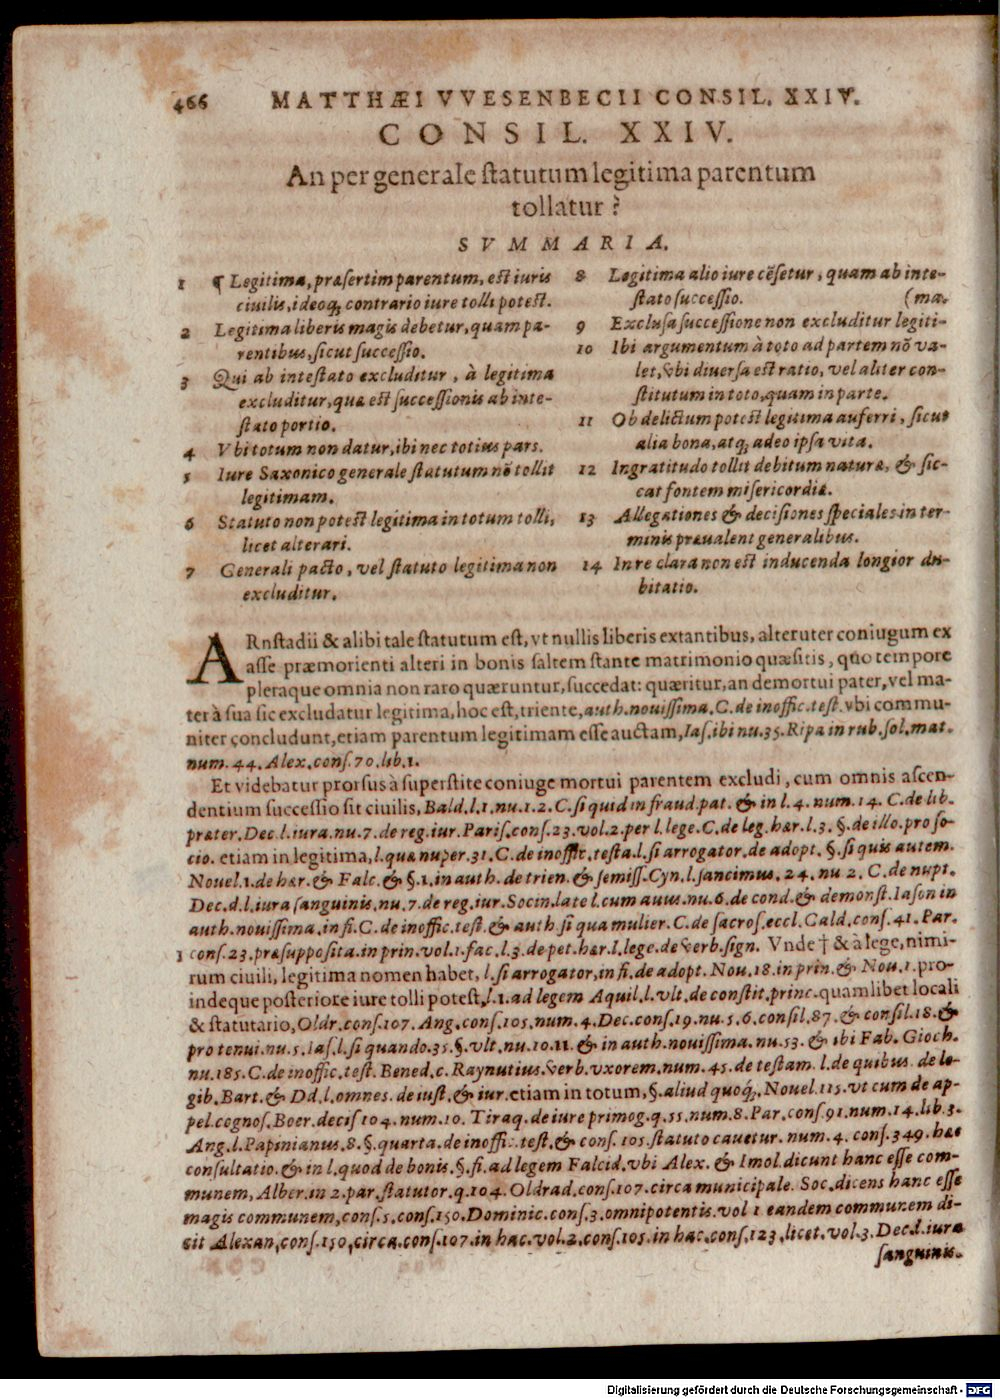 466 MATTHÆI VVESENBECII CONSIL. XXIV.
CONSIL. XXIV.
An per generale ſtatutum legitima parentum
tollatur?
SVMMARIA.
1 ¶ Legitima, præſertim parentum, eſt iuris
ciuilis, ideoq́; contrario iure tolli poteſt.
2 Legitima liberis magis debetur, quam pa-
rentibus, ſicut ſucceſſio.
3 Qui ab inteſtato excluditur, à legitima
excluditur, quæ eſt ſucceſſionis ab inte-
ſtato portio.
4 Vbi totum non datur, ibi nec totius pars.
5 Iure Saxonico generale ſtatutum nõ tollit
legitimam.
6 Statuto non poteſt legitima in totum tolli,
licet alterari.
7 Generali pacto, vel ſtatuto legitima non
excluditur.
8 Legitima alio iure cẽſetur, quam ab inte-
ſtato ſucceſſio. (ma.
9 Excluſa ſucceſſione non excluditur legiti-
10 Ibi argumentum à toto ad partem nõ va-
let, vbi diuerſa eſt ratio, vel aliter con-
ſtitutum in toto, quam in parte.
11 Ob delictum poteſt legitima auferri, ſicut
alia bona, atq́; adeo ipſa vita.
12 Ingratitudo tollit debitum naturæ, & ſic-
cat fontem miſericordiæ.
13 Allegationes & deciſiones ſpeciales in ter-
minis præualent generalibus.
14 In re clara non eſt inducenda longior du-
bitatio.
ARnſtadii & alibi tale ſtatutum eſt, vt nullis liberis extantibus, alteruter coniugum ex
aſſe præmorienti alteri in bonis ſaltem ſtante matrimonio quæſitis, quo tempore
pleraque omnia non raro quæruntur, ſuccedat: quæritur, an demortui pater, vel ma-
ter à ſua ſic excludatur legitima, hoc eſt, triente, auth. nouiſſima. C. de inoffic. teſt. vbi commu-
niter concludunt, etiam parentum legitimam eſſe auctam, Iaſ. ibi nu. 35. Ripa in rub. ſol. mat.
num. 44. Alex. conſ. 70. lib. 1.
Et videbatur prorſus à ſuperſtite coniuge mortui parentem excludi, cum omnis aſcen-
dentium ſucceſſio ſit ciuilis, Bald. l. 1. nu. 1. 2. C. ſi quid in fraud. pat. & in l. 4. num. 14. C. de lib.
præter. Dec. l. iura. nu. 7. de reg. iur. Pariſ. conſ. 23. vol. 2. per l. lege. C. de leg. hær. l. 3. §. de illo. pro ſo-
cio. etiam in legitima, l. quæ nuper. 31. C. de inoffic. teſta. l. ſi arrogator. de adopt. §. ſi quis autem.
Nouel. 1. de hær. & Falc. & §. 1. in auth. de trien. & ſemiſſ. Cyn. l. ſancimus. 24. nu 2. C. de nupt.
Dec. d. l. iura ſanguinis. nu. 7. de reg. iur. Socin. late l. cum auus. nu. 6. de cond. & demonſt. Iaſon in
auth. nouiſſima. in fi. C. de inoffic. teſt. & auth. ſi qua mulier. C. de ſacroſ. eccl. Cald. conſ. 41. Par.
1 conſ. 23. præſuppoſita. in prin. vol. 1. fac. l. 3. de pet. hær. l. lege. de verb. ſign. Vnde † & à lege, nimi-
rum ciuili, legitima nomen habet, l. ſi arrogator, in fi. de adopt. Nou. 18. in prin. & Nou. 1. pro-
indeque poſteriore iure tolli poteſt, l. 1. ad legem Aquil. l. vlt. de conſtit. princ. quamlibet locali
& ſtatutario, Oldr. conſ. 107. Ang. conſ. 105. num. 4. Dec. conſ. 19. nu. 5. 6. conſil. 87. & conſil. 18. &
pro tenui. nu. 5. Iaſ. l. ſi quando. 35. §. vlt. nu. 10. 11. & in auth. nouiſſima. nu. 53. & ibi Fab. Gioch.
nu. 185. C. de inoffic. teſt. Bened. c. Raynutius. verb. vxorem. num. 45. de teſtam. l. de quibus. de le-
gib. Bart. & Dd. l. omnes. de iuſt. & iur. etiam in totum, §. aliud quoq́;. Nouel. 115. vt cum de ap-
pel. cognoſ. Boer. deciſ 104. num. 10. Tiraq. de iure primog. q. 55. num. 8. Par. conſ. 91. num. 14. lib. 3.
Ang. l. Papinianus. 8. §. quarta. de inoffic. teſt. & conſ. 105. ſtatuto cauetur. num. 4. conſ. 349. hæc
conſultatio. & in l. quod de bonis. §. fi. ad legem Falcid. vbi Alex. & Imol. dicunt hanc eſſe com-
munem, Alber. in 2. par. ſtatutor. q. 104. Oldrad. conſ. 107. circa municipale. Soc. dicens hanc eſſe
magis communem, conſ. 5. conſ. 150. Dominic. conſ. 3. omnipotentis. vol 1 eandem communem di-
cit Alexan. conſ. 150. circa. conſ. 107. in hac. vol. 2. conſ. 105. in hac. conſ. 123. licet. vol. 3. Dec. l. iura
ſanguinis.
Digitalisierung gefördert durch die Deutsche Forschungsgemeinschaft - DFG